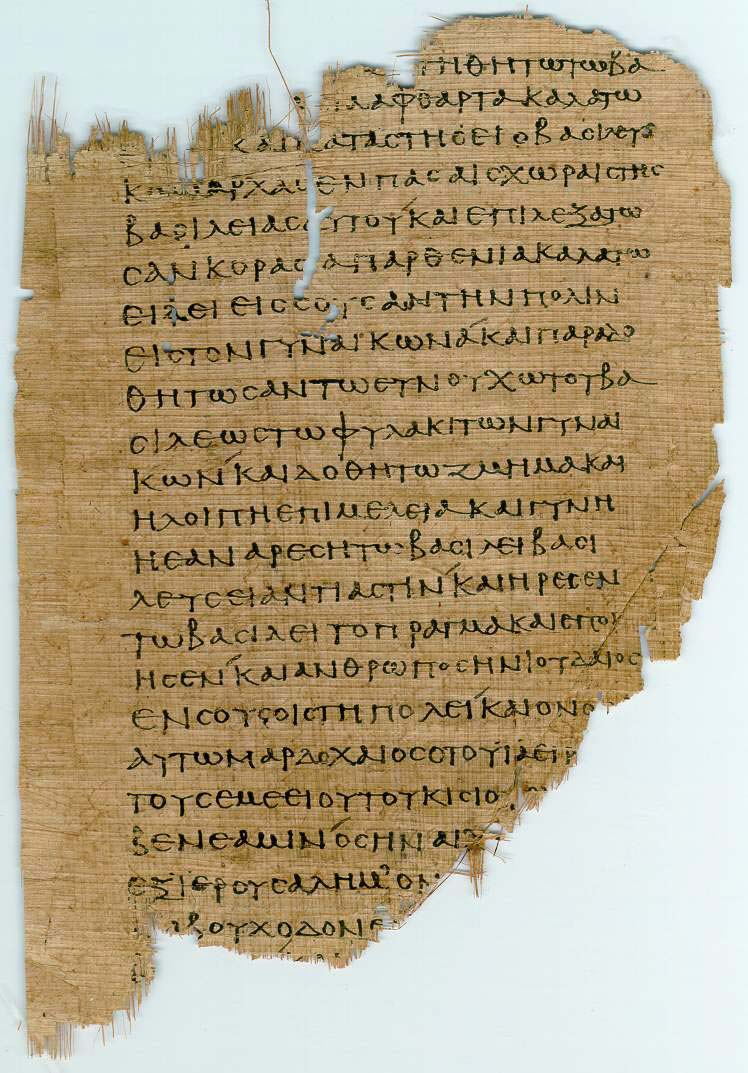 ΤΗΘΗΤΩΤΩΒΑ
ΑΦΘΑΡΤΑΚΑΛΑΤΩ
ΚΑΙΚΑΤΑϹΤΗϹΕΙΟΒΑϹΙΛΕΥϹ
ΚΩΜΑΡΧΑϹΕΝΠΑϹΑΙϹΧΩΡΑΙϹΤΗϹ
ΒΑϹΙΛΕΙΑϹΑΥΤΟΎΚΑΙΕΠΙΛΕΞΑΤΩ
ϹΑΝΚΟΡΑϹΙΑΠΑΡΘΕΝΙΑΚΑΛΑΤΩ
ΕΙΔΕΙΕΙϹϹΟΥϹΑΝΤΗΝΠΟΛΙΝ
ΕΙϹΤΟΝΓΥΝΑΙΚΩΝΆΚΑΙΠΑΡΑΔΟ
ΘΗΤΩϹΑΝΤΩΕΥΝΟΥΧΩΤΟΥΒΑ
ϹΙΛΕΩϹΤΩΦΥΛΑΚΙΤΩΝΓΥΝΑΙ
ΚΩΝ́ΚΑΙΔΟΘΗΤΩΖΜΗΜΑΚΑΙ
ΗΛΟΙΠΗΕΠΙΜΕΛΕΙΑΚΑΙΓΥΝΗ
ΗΕΑΝΑΡΕϹΗΤΩΒΑϹΙΛΕΙΒΑϹΙ
ΛΕΥϹΕΙΑΝΤΙΑϹΤΙΝ́ΚΑΙΗΡΕϹΕΝ
ΤΩΒΑϹΙΛΕΙΤΟΠΡΑΓΜΑΚΑΙΕΠΟΙ
ΗϹΕΝ́ΚΑΙΑΝΘΡΩΠΟϹΗΝΙΟΥΔΑΙΟϹ
ΕΝϹΟΥϹΟΙϹΤΗΠΟΛΕΊΚΑΙΟΝΟ
ΑΥΤΩΜΑΡΔΟΧΑΙΟϹΟΤΟΥΙΑΕΙ
ΤΟΥϹΕΜΕΕΙΟΥΤΟΥΚΙϹΙΟ
ΒΕΝΕΑΜΙΝ́ΟϹΗΝΑΙΧ
ΕΞΙΕΡΟΥϹΑΛΗΜ᾿ΟΝ
ΒΟΥΧΟΔΟΝΕ